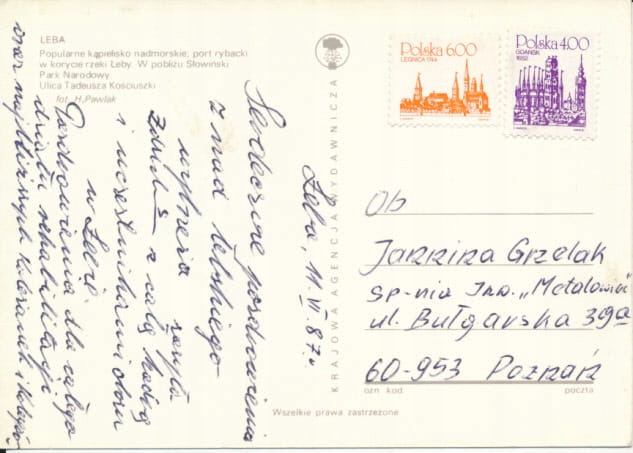 ŁEBA
Popularne kąpielisko nadmorskie, port rybacki
w korycie rzeki Łeby. W pobliżu Słowiński
Park Narodowy
Ulica Tadeusza Kościuszki
fot. H. Pawlak
KRAJOWA AGENCJA WYDAWNICZA
Polska 6.00
LEGNICA 1744
Polska 4.00
GDAŃSK 1652
Łeba, 11.VI.87r.
Serdeczne pozdrowienia
z nad łebskiego
wybrzeża
z całą kadrą
i uczestnikami obozu
w Łebie
Pozdrowienia dla całego
działu rehabilitacji
oraz najbliższych koleżanek i kolegów
Ob
Jannina Grzelak
Sp-nia Inw. „Metalowiec"
ul. Bułgarska 39a
60-953 Poznań
ozn kod
poczta
Wszelkie prawa zastrzeżone